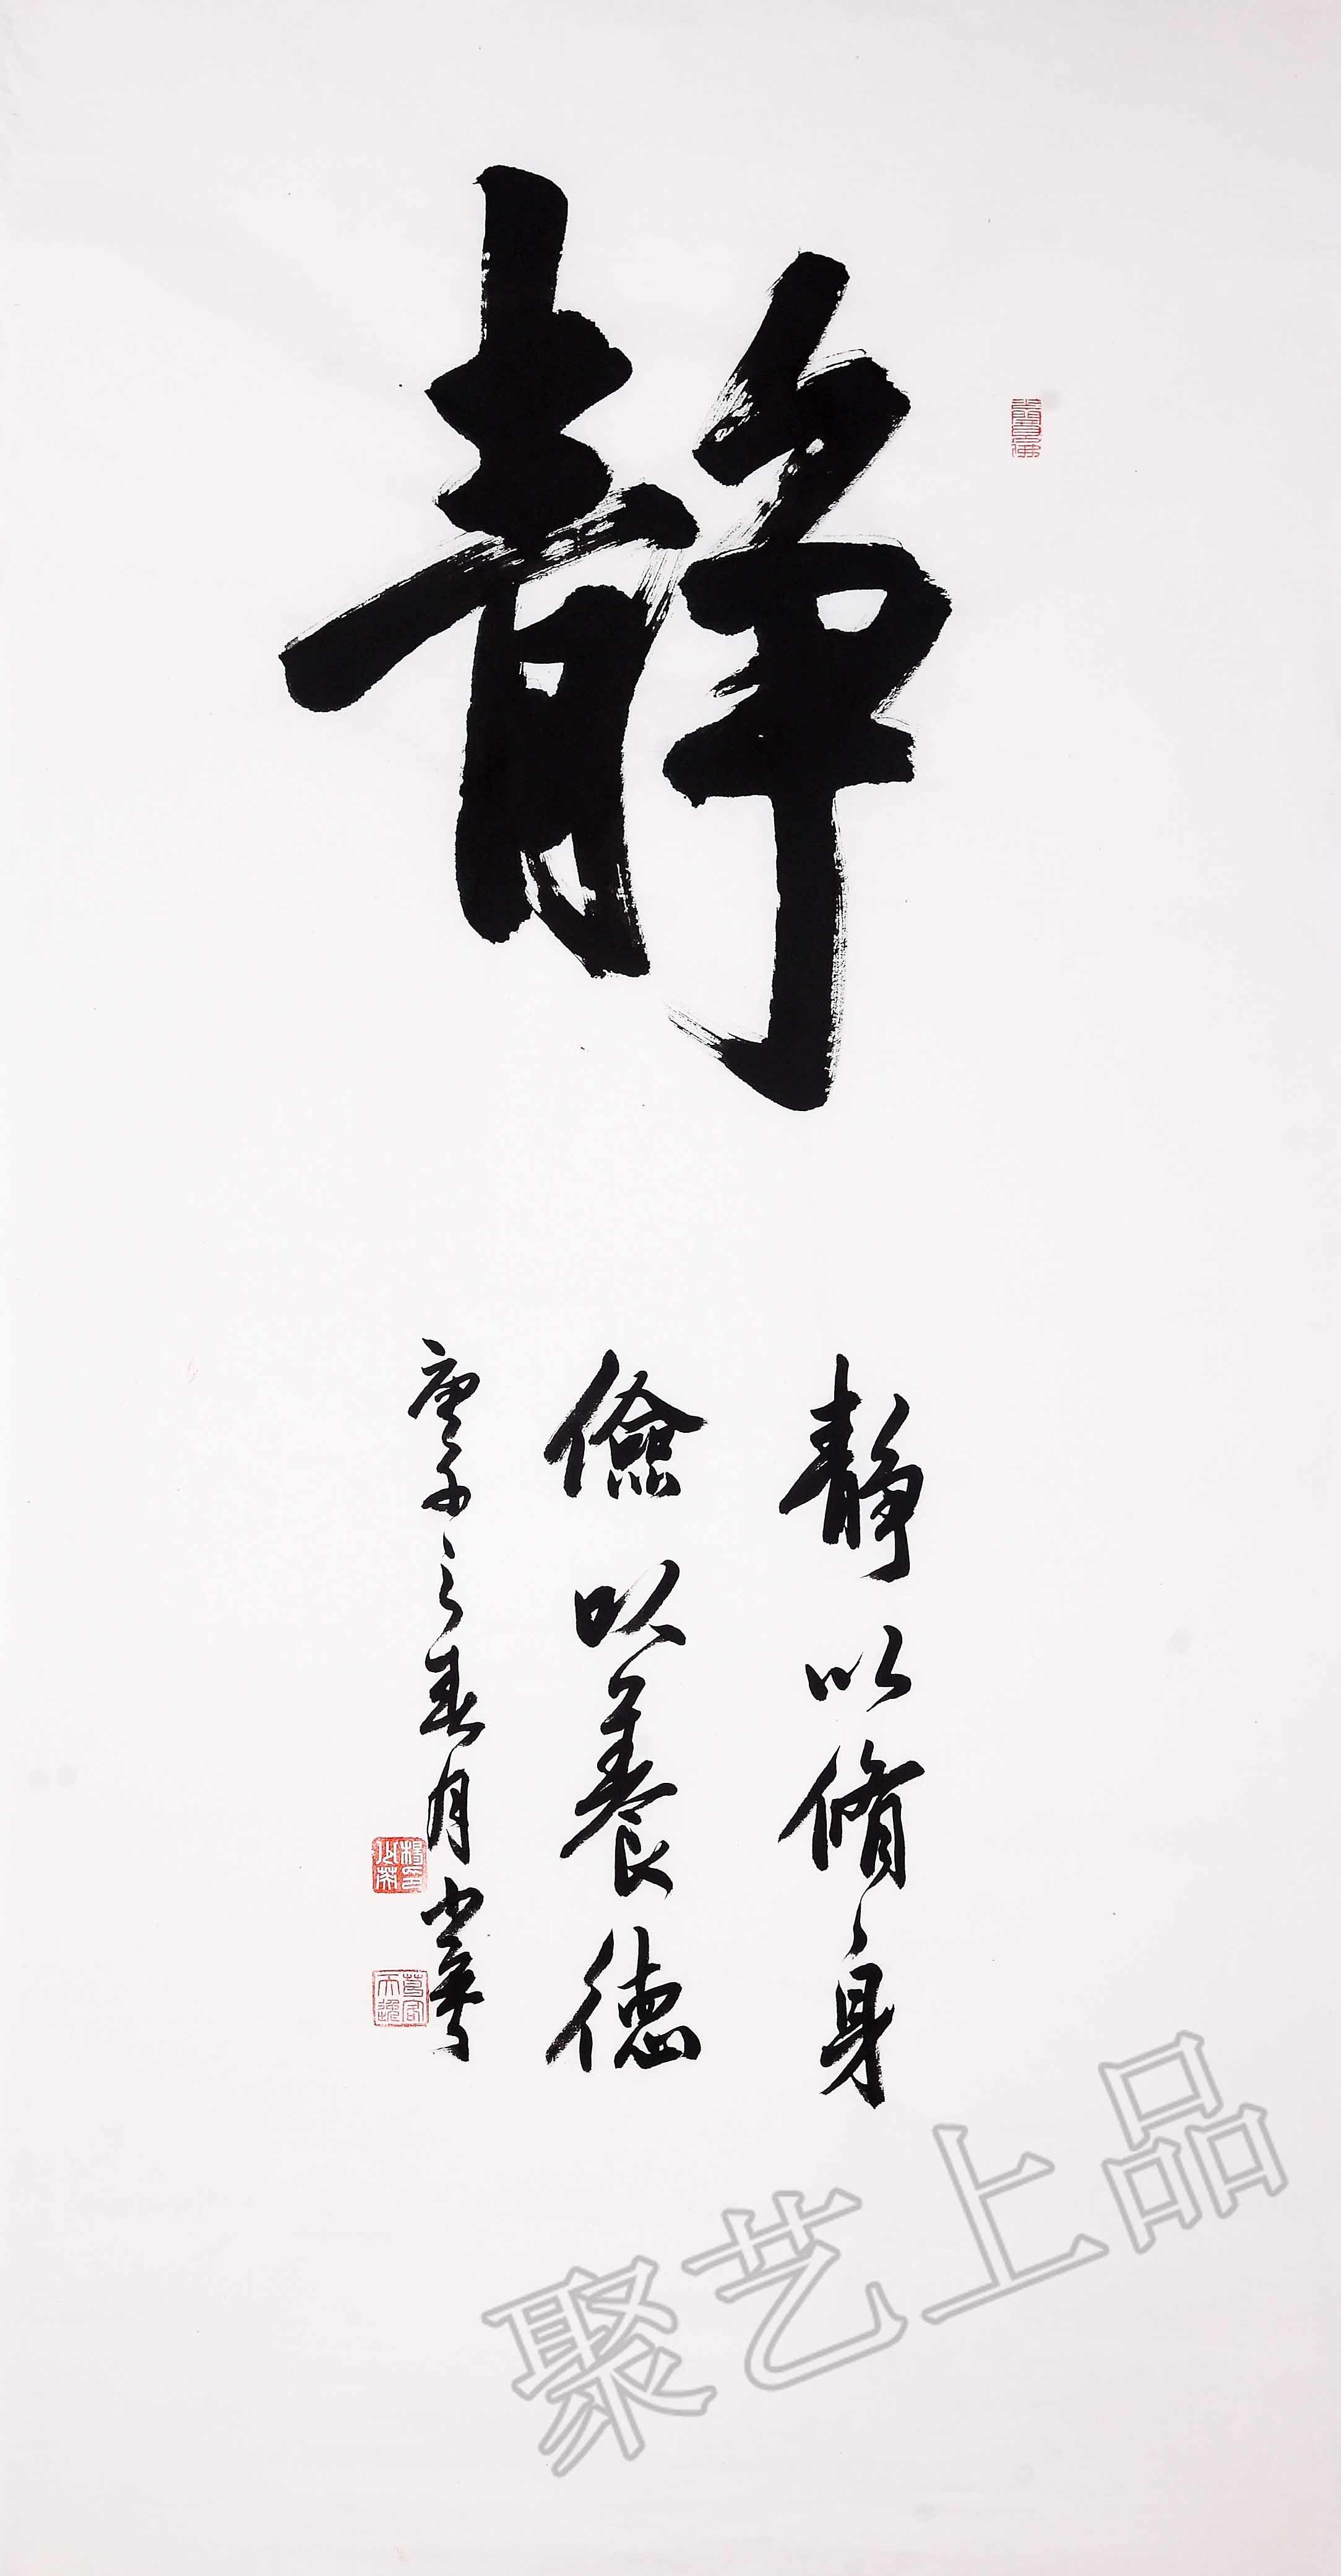 静
静以脩身
儉以養德
庚子之春月少華
聚艺上品